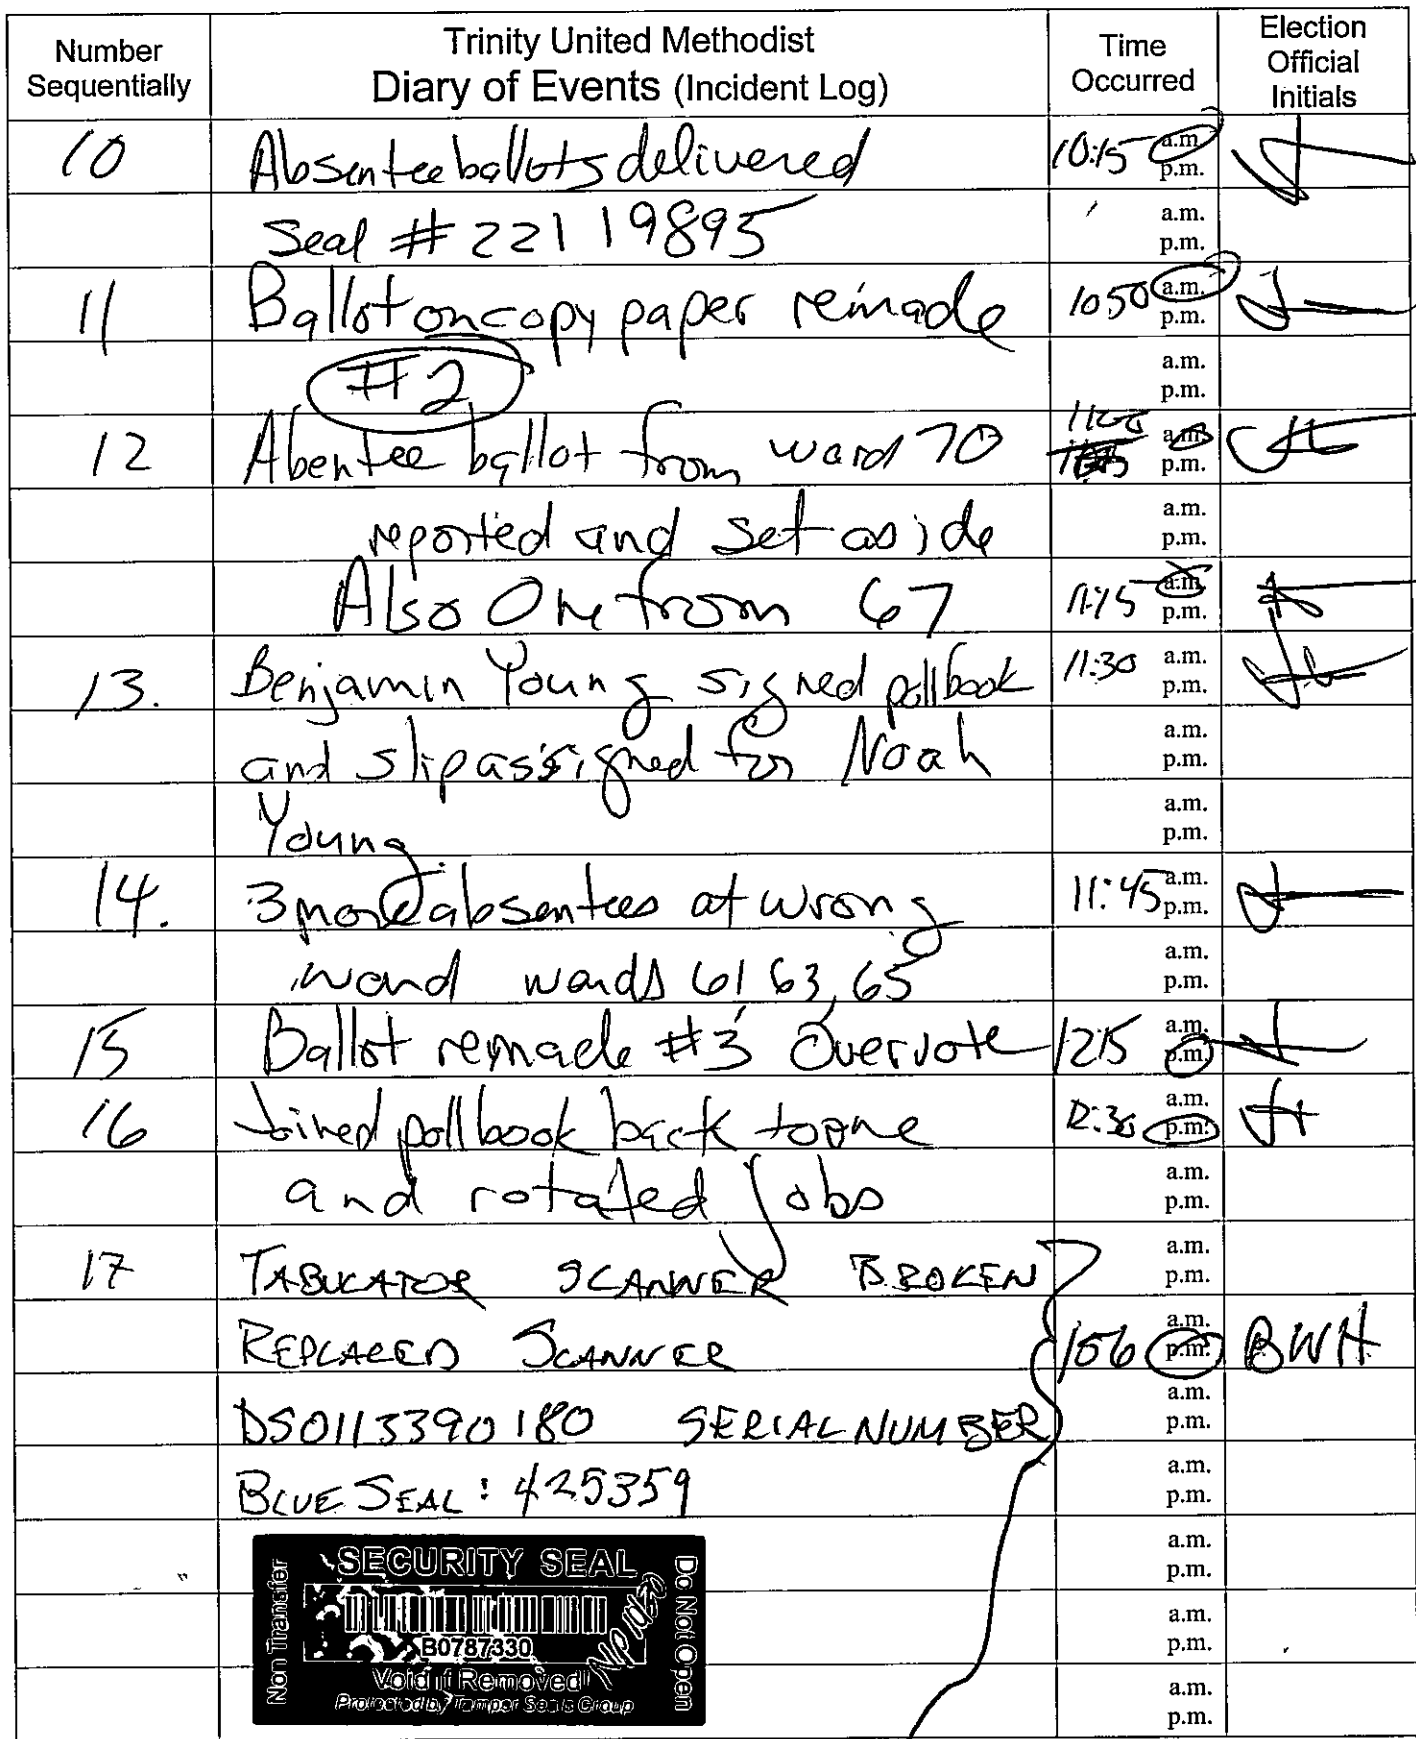 Number Sequentially | Trinity United Methodist Diary of Events (Incident Log) | Time Occurred | Election Official Initials
10 Absentee ballots delivered 10:15 a.m. p.m.
Seal # 22119895 a.m. p.m.
11 Ballot on copy paper remade 1050 a.m. p.m.
#2 a.m. p.m.
12 Abentee ballot from ward 70 a.m. p.m.
reported and set aside a.m. p.m.
Also One from 67 11:15 a.m. p.m.
13. Benjamin Young signed pollbook 11:30 a.m. p.m.
and slip assigned for Noah a.m. p.m.
Young a.m. p.m.
14. 3 more absentees at wrong 11:45 a.m. p.m.
ward wards 61 63, 65 a.m. p.m.
15 Ballot remade #3 Overvote 1215 a.m. p.m.
16 Joined pollbook back to one 12:30 a.m. p.m.
and rotated jobs a.m. p.m.
17 TABULATOR SCANNER BROKEN a.m. p.m.
REPLACED SCANNER 156 a.m. p.m. BWH
DS0113390180 SERIAL NUMBER a.m. p.m.
BLUE SEAL: 425359 a.m. p.m.
SECURITY SEAL a.m. p.m.
Non Transfer
B0787330 a.m. p.m.
Void if Removed
Protected by Tamper Seals Group a.m. p.m.
Do Not Open